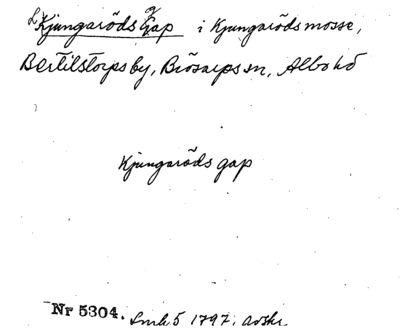 Kjungaröds Gap i Kjungarödsmosse,
Bertilstorps by, Brösarps sn, Albo hd
Kjungaröds gap
Nr 5304. Lmh 5 1797. avskr.